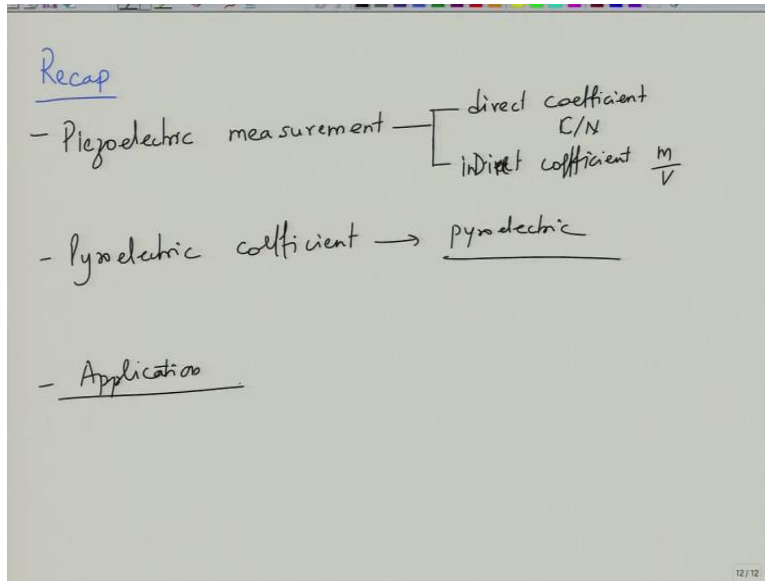 Recap
- Piezoelectric measurement direct coefficient
C/N
inDirect coefficient m/V
- Pyroelectric coefficient → pyroelectric
- Application
12/12